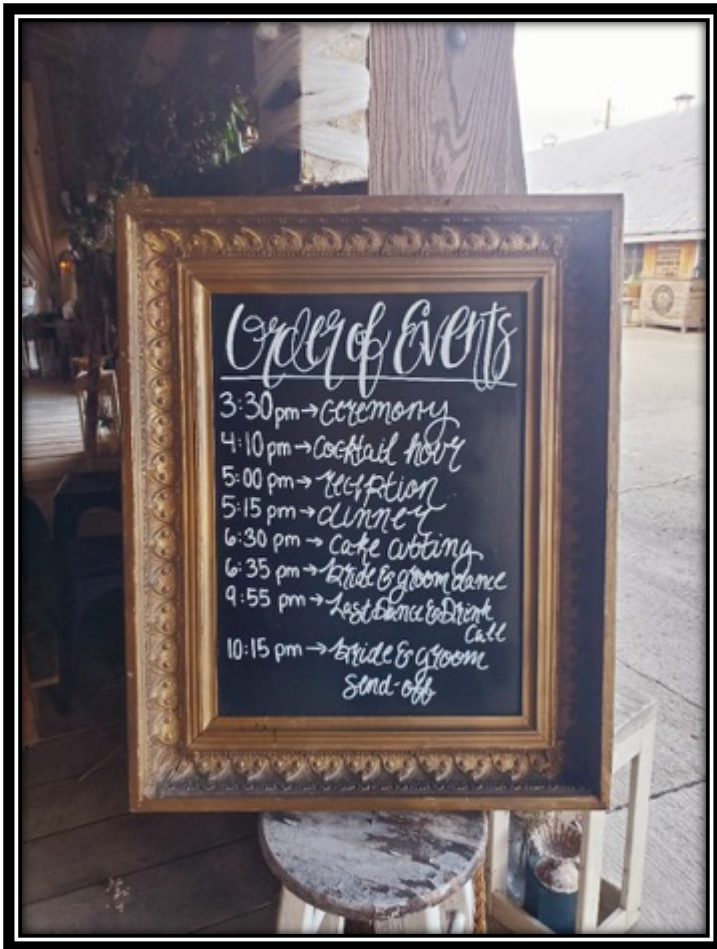 Order of Events
3:30 pm → ceremony
4:10 pm → cocktail hour
5:00 pm → reception
5:15 pm → dinner
6:30 pm → cake cutting
6:35 pm → bride & groom dance
9:55 pm → Last Dance & Drink
Call
10:15 pm → bride & groom
send-off